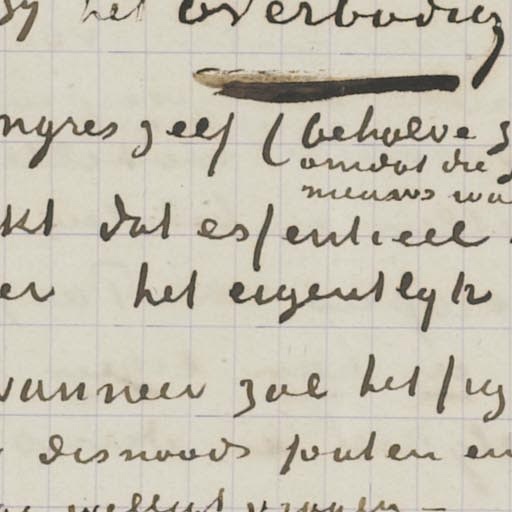 het overbodig
ngres zelf (behalve
omdat die
nieuws wa
kt dat essentieel
er het eigentlyk
wanneer zal het
desnoods fouten en
wellicht vragen —